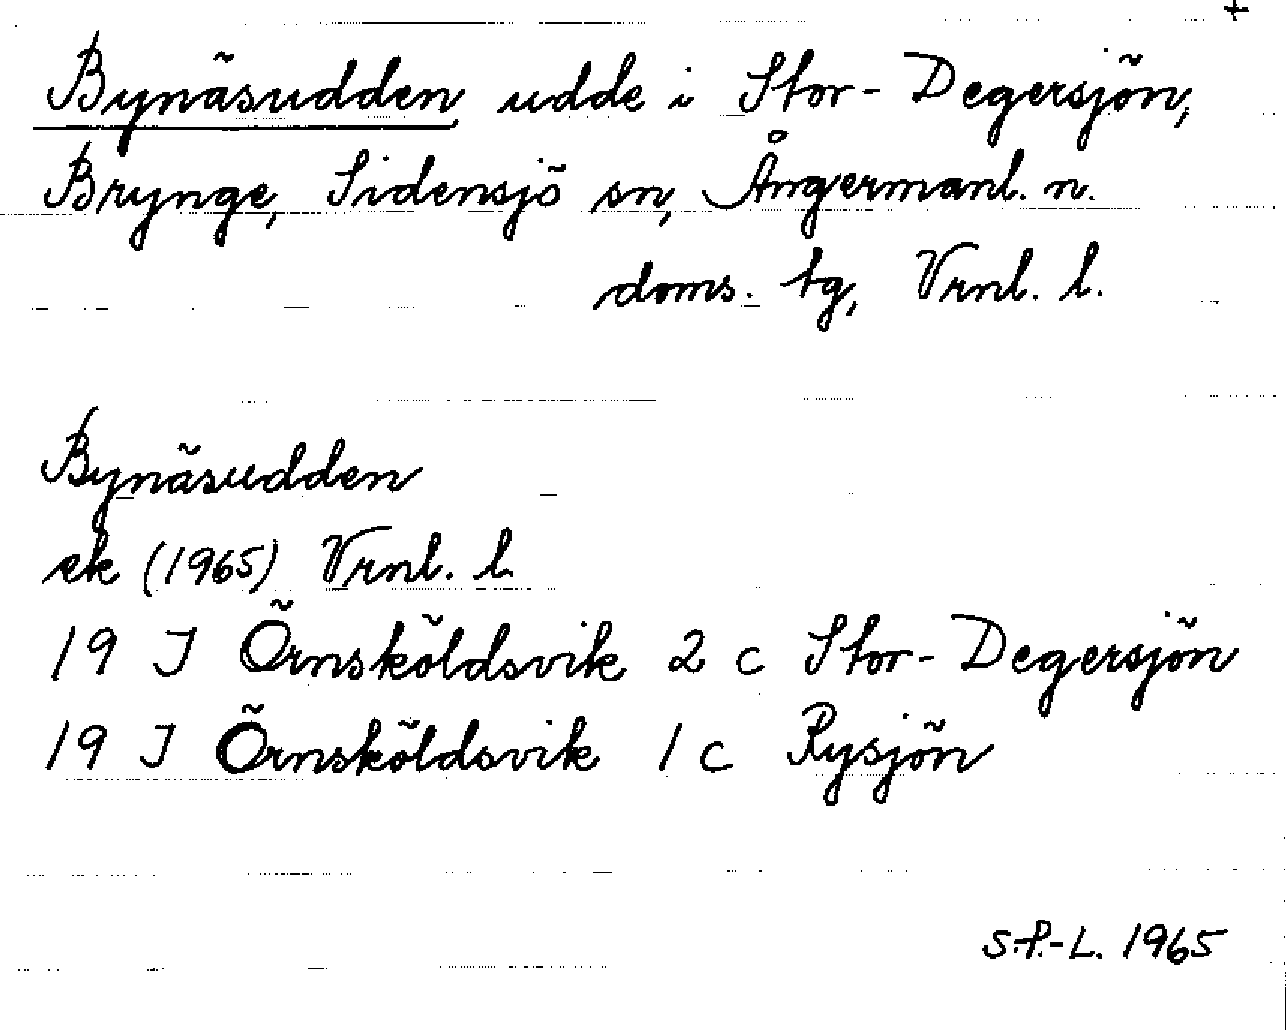 +
Bynäsudden, udde i Stor-Degersjön,
Brynge, Sidensjö sn, Ångermanl. n.
doms. tg, Vrnl. l.
Bynäsudden
ek (1965) Vrnl. l.
19 J Örnsköldsvik 2 c Stor-Degersjön
19 J Örnsköldsvik 1 c Rysjön
S.P.-L. 1965